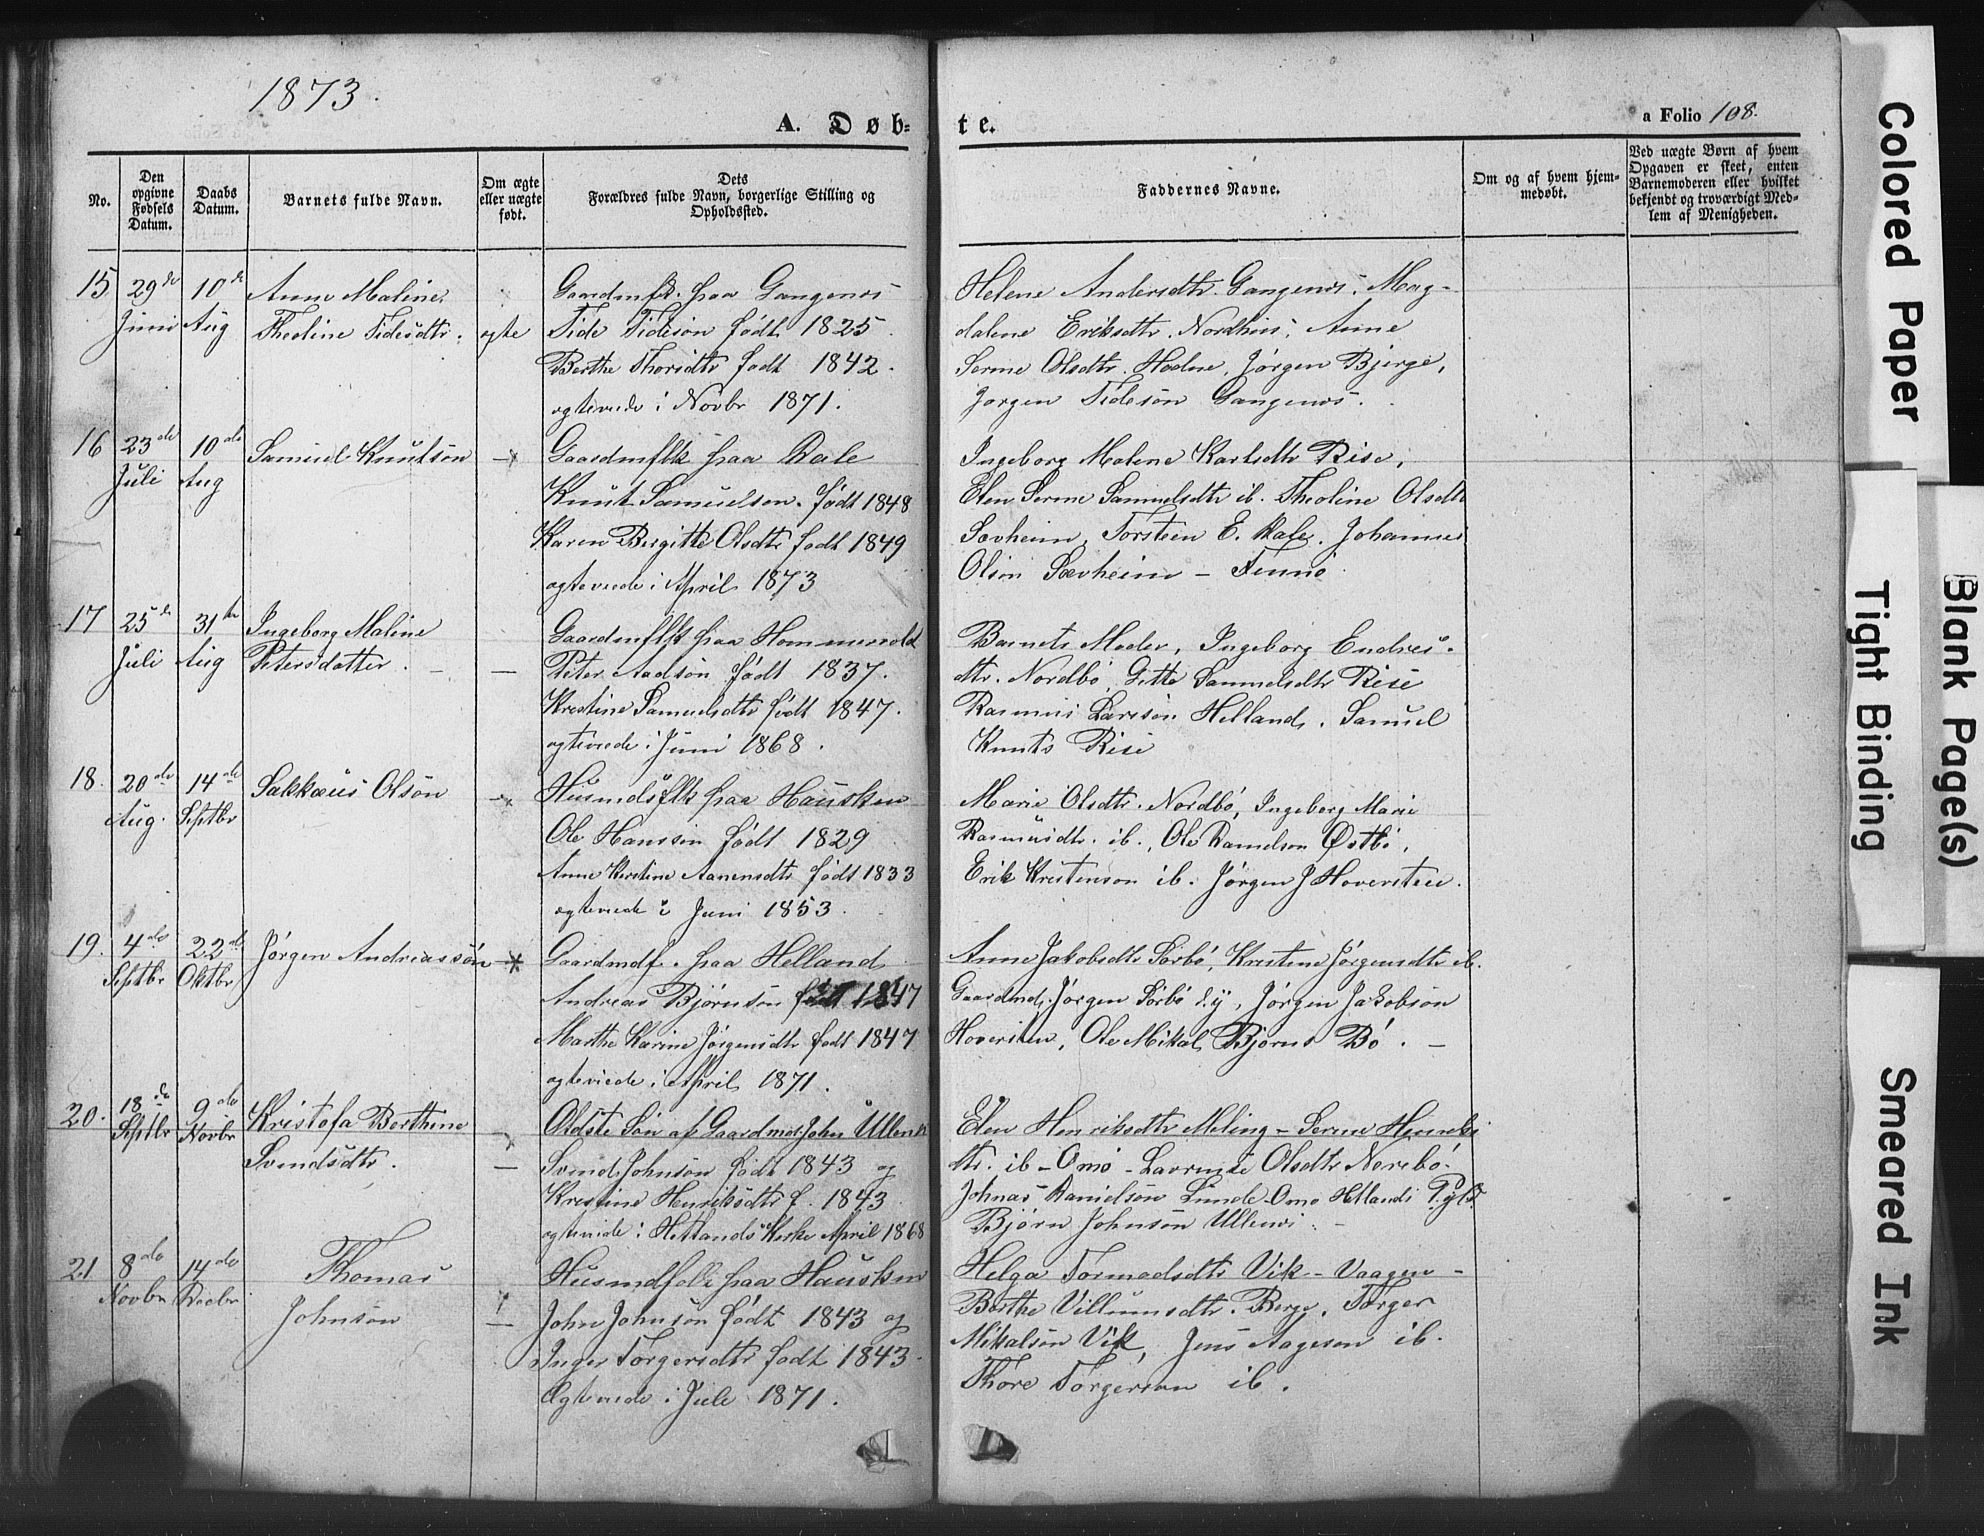 1873.
A. Døb-
te.
a Folio 108.
No.
Den opgivne Fødsels Datum.
Daabs Datum.
Barnets fulde Navn.
Om ægte eller uægte født.
Dets Forældres fulde Navn, borgerlige Stilling og Opholdssted.
Faddernes Navne.
Om og af hvem hjem-
medøbt.
Ved uægte Børn af hvem
Opgaven er skeet, enten
Barnemoderen eller hvilket
bekjendt og troværdigt Med-
lem af Menigheden.
15 29de Juni 10de Aug
Anne Maline
Theoline Tidesdtr. ægte
Gaardmfk. paa Gangenes
Tide Tideson født 1825
Berthe Thorsdtr født 1842.
ægteviede i Novbr 1871.
Helene Andersdtr. Gangenes, Mag-
dalene Eriksdtr. Nordhus, Anne
Serine Olsdtr. Hodne, Jørgen Bjerge,
Jørgen Tideson Gangenes.
16 23de Juli 10de Aug
Samuel Knutsøn
Gaardmflk paa Dale
Knut Samuelson. født 1848
Karen Bergitte Olsdtr født 1849
ægteviede i April 1873
Ingeborg Malene Karlsdtr Rise,
Elen Serine Samuelsdtr ib. Theoline Olsdtr
Sævheim, Torsteen E. Dale. Johannes
Olson Sævheim – Finnø.
17 25de Juli 31te Aug
Ingeborg Maline
Petersdatter. –
Gaardmflk paa Hommersold
Peter Aadsøn født 1837.
Kristine Samuelsdtr født 1847.
ægteviede i Juni 1868.
Barnets Moder, Ingeborg Endres-
dtr. Nordbø, Gitte Samuelsdtr Rise
Rasmus Larsson Helland, Samuel
Knuts Rise
18. 20de Aug. 14de Septbr
Sakkæus Olsøn
Husmdsflk paa Hausken
Ole Hanssøn født 1829
Anne Kirstine Aanensdtr født 1833
ægteviede i Juni 1853.
Marie Olsdtr. Nordbø, Ingeborg Marie
Rasmusdtr. ib., Ole Danielson Østbø,
Erik Kristenson ib. Jørgen J Hoversteen.
19. 4de Septbr 22de Oktbr
Jørgen Andreassøn
Gaardmdf. paa Helland
Andreas Bjørnsøn født 1847
Marthe Karine Jørgensdtr født 1847
ægteviede i April 1871.
Anne Jakobsdtr Sørbø, Kristine Jørgensdtr ib.
Gaardmd. Jørgen Sørbø d.y, Jørgen Jakobson
Hoversten, Ole Mikal Bjørns Bø. –
20. 18de Septbr 9de Novbr
Kristofa Berthine
Svendsdtr.
Oldste Søn af Gaardmd. John Ullenes
Svend Johnsøn født 1843 og
Kristine Henriksdtr f. 1843
ægteviede i Hetlands Kirke April 1868
Elen Henriksdtr Meling – Serine Henriks
dtr. ib – Omø – Lavrense Olsdtr Norebø.
Johnas Danielsøn Lunde Omo Hetlands Pgld.
Bjørn Johnsøn Ullenes. –
21 8de Novbr 14de Decbr
Thomas
Johnsøn
Husmdfolk paa Hausken
John Johnsøn født 1843 og
Inger Torgersdtr født 1843.
Ægteviede i Juli 1871.
Helga Tormodsdtr Vik – Vaagen –
Berthe Villumsdtr. Berge. Torger
Mikalsøn Vik, Jens Aageson ib.
Thore Torgerson ib.
Colored Paper
Blank Page(s)
Tight Binding
Smeared Ink